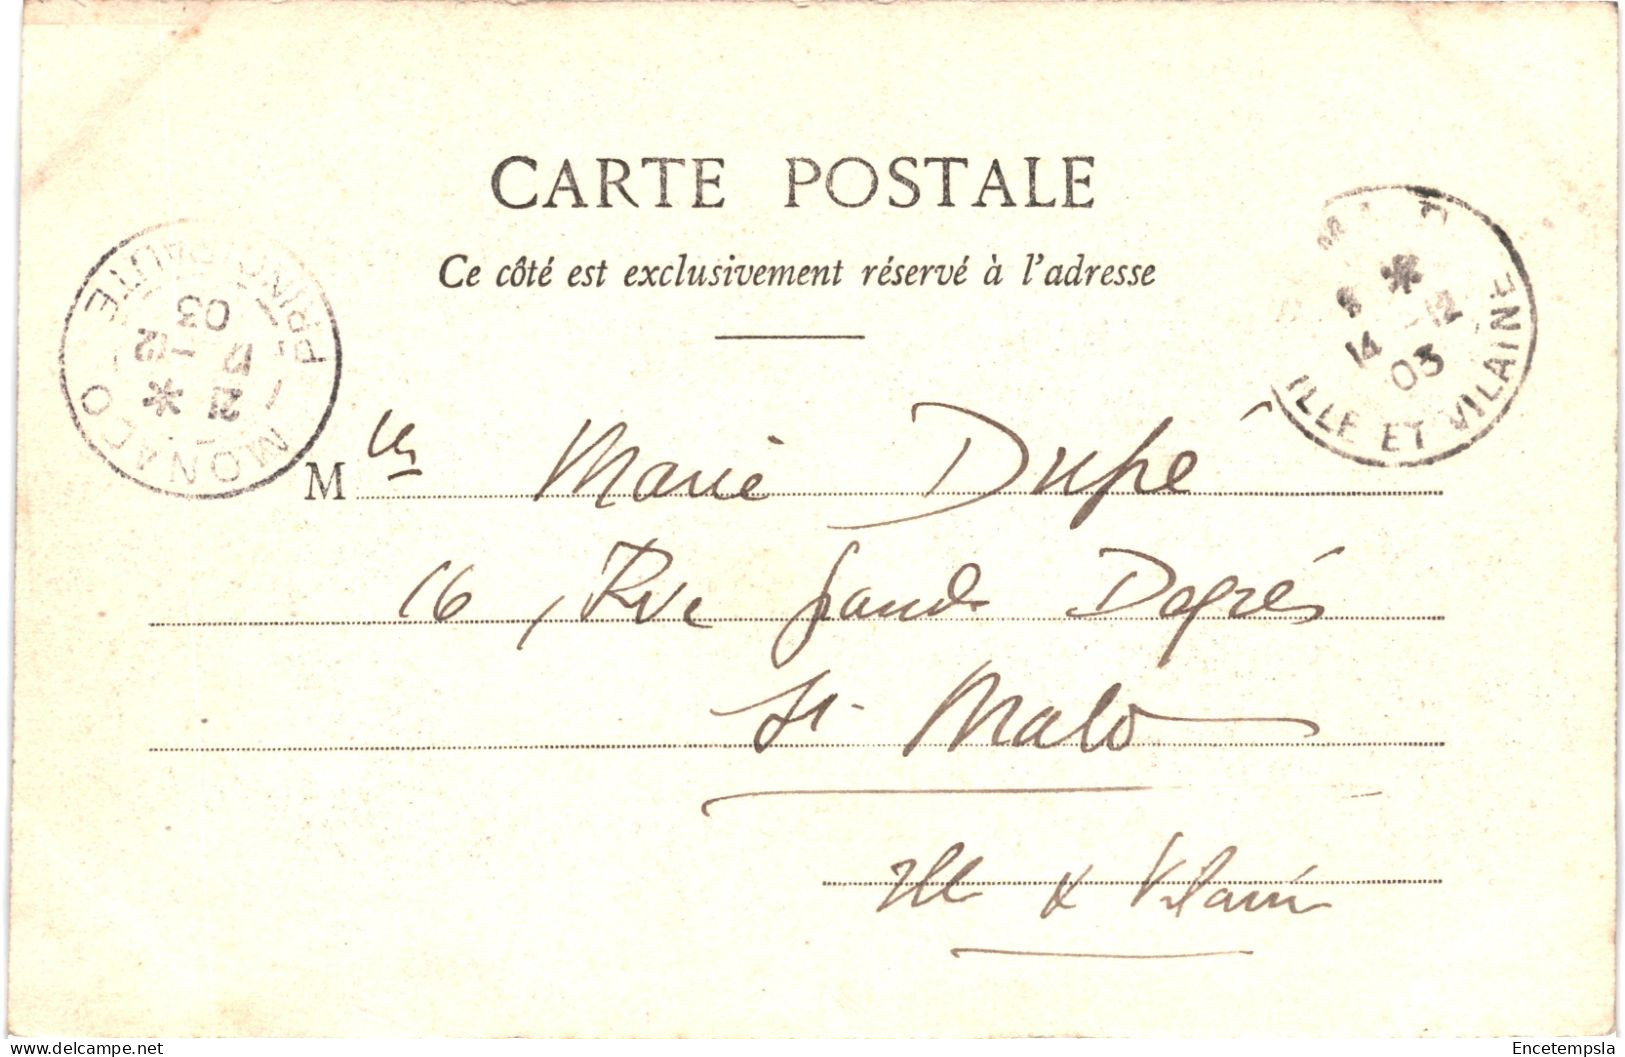 CARTE POSTALE
Ce côté est exclusivement réservé à l'adresse
PRINCIPAUTE MONACO
21 * 12 -12 03
* 14 -12 03
ILLE ET VILAINE
Mlle Marie Dupé
16, Rue Grands Degrés
St Malo
Ille & Vilaine
Encetempsla